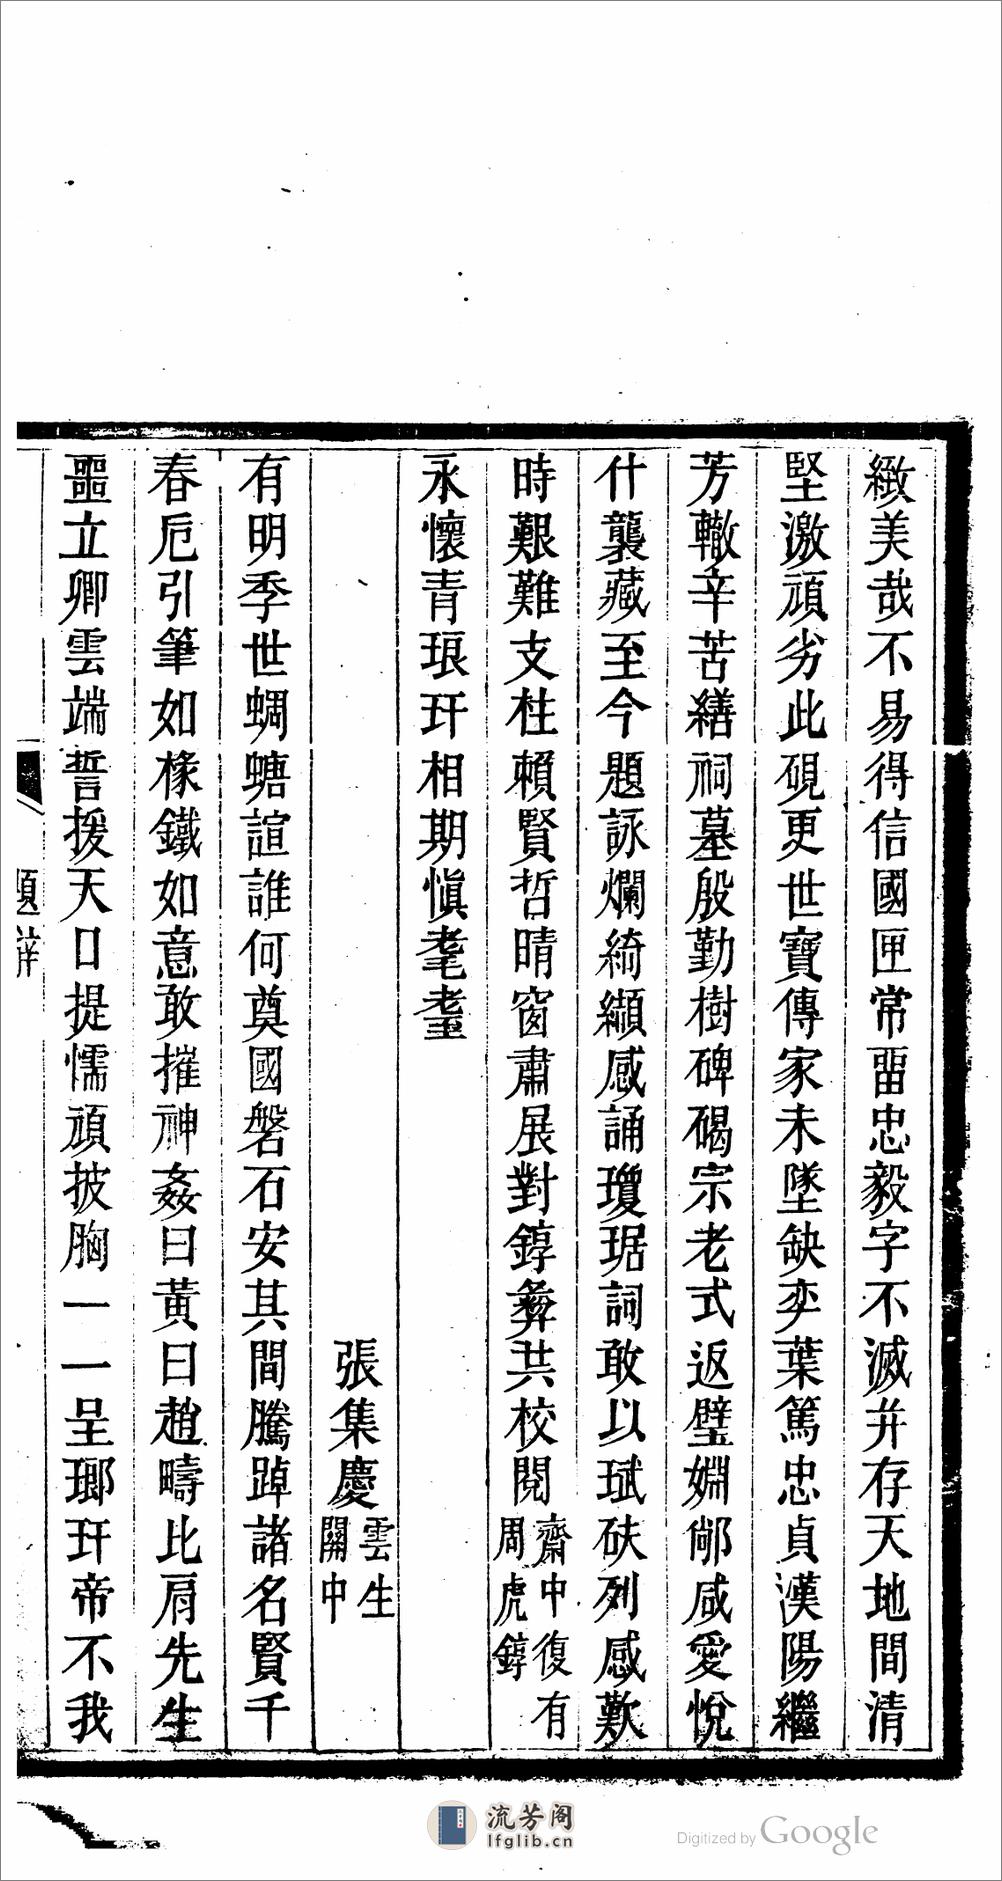 緻美哉不易得信國匣常畱忠毅字不滅并存天地間清
堅激頑劣此硯更世寶傳家未墜缺弈葉篤忠貞漢陽繼
芳轍辛苦繕祠墓殷勤樹碑碣宗老式返璧婣鄰咸愛悅
什襲藏至今題詠爛綺纈感誦瓊琚詞敢以珷砆列感歎
時艱難支柱賴賢哲晴窗肅展對錞彝共校閱齋中復有周虎錞
永懷青琅玕相期愼耄耋
張集慶雲生關中
有明季世蜩螗諠誰何奠國磐石安其間騰踔諸名賢千
春卮引筆如椽鐵如意敢摧神姦曰黃曰趙疇比肩先生
噩立卿雲端誓援天口提懦頑披胸一一呈瑯玕帝不我
題辭
流芳阁
lfglib.cn
Digitized by Google